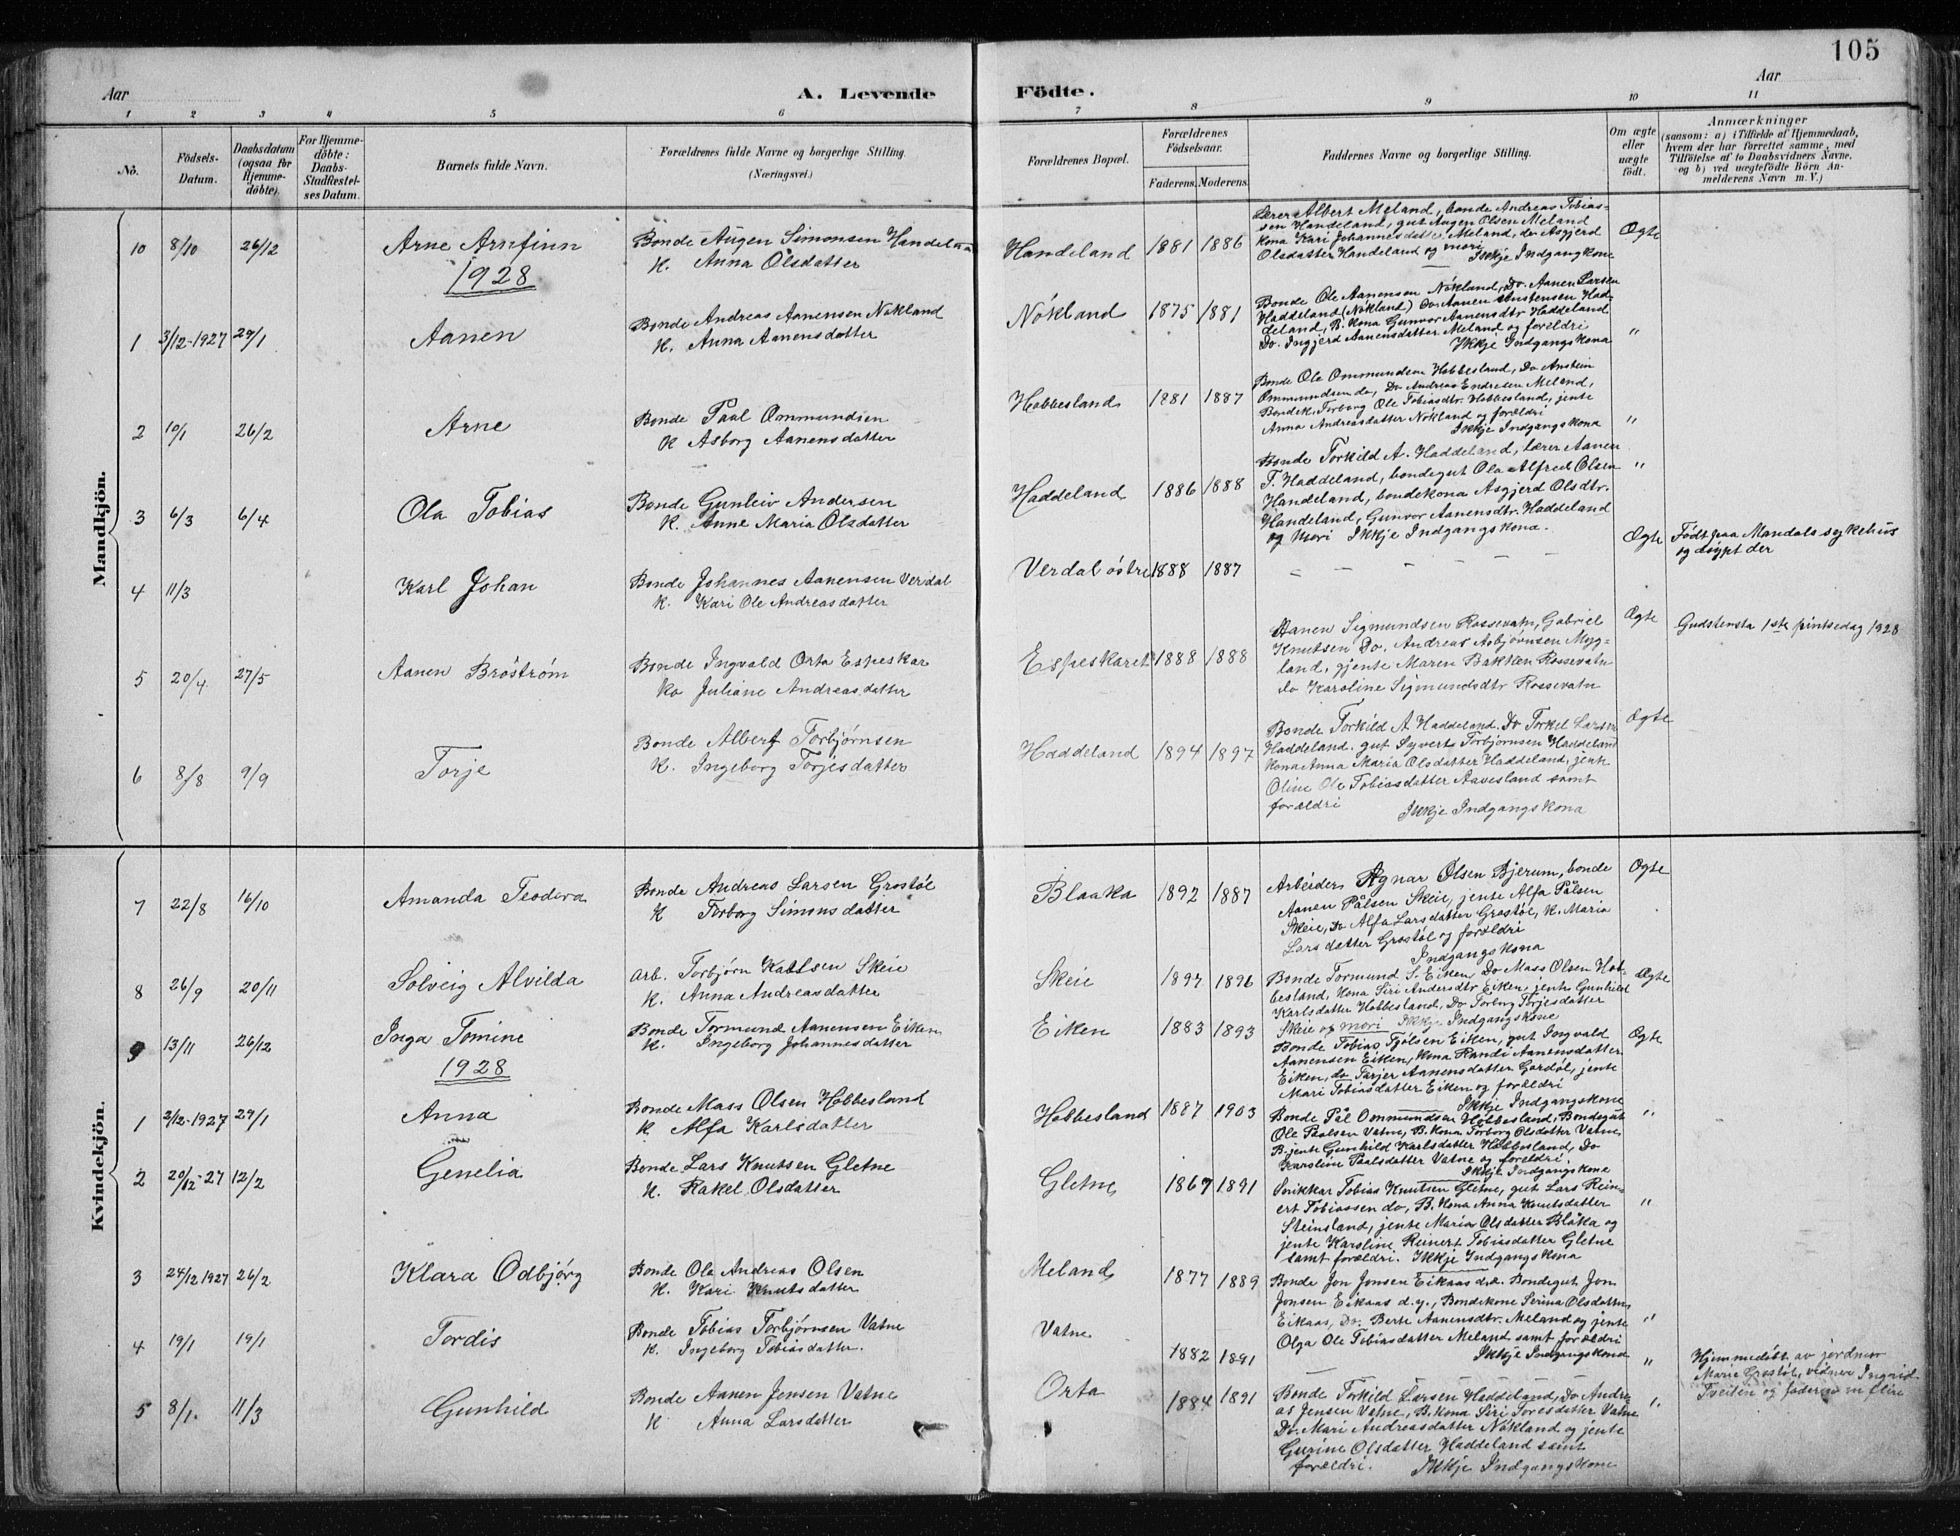 105
Aar
A. Levende
Födte.
Aar
1 2 3 4 5 6 7 8 9 10 11
No.
Födsels-
Datum.
Daabsdatum
(ogsaa for
Hjemme-
döbte).
For Hjemme-
döbte:
Daabs-
Stadfæstel-
ses Datum.
Barnets fulde Navn.
Forældrenes fulde Navne og borgerlige Stilling.
(Næringsvei.)
Forældrenes Bopæl.
Forældrenes
Födselsaar.
Faderens. Moderens.
Faddernes Navne og borgerlige Stilling.
Om ægte
eller
uægte
födt.
Anmærkninger
(saasom: a) i Tilfælde af Hjemmedaab,
hvem der har forrettet samme, med
Tilföielse af to Daabsvidners Navne,
og b) ved uægtefödte Börn An-
melderens Navn m. V.)
Mandkjön.
10 8/10 26/12 Arne Arnfinn
Bonde Augen Simonsen Handeland
K. Anna Olsdatter
Handeland 1881 1886
Lærer Albert Meland, bonde Andreas Tobias-
sen Handeland, gut Augen Olsen Meland
kona Kari Johannesdatter Meland, do Asgjerd
Olsdatter Handeland og mori
Ikkje Indgangkone
Ægte
1928
1 3/12-1927 29/1 Aanen
Bonde Andreas Aanensen Nökland
K. Anna Aanensdatter
Nökland 1875 1881
Bonde Ole Aanensen Nökland, Do. Aanen Larsen
Haddeland (Nökland) Do Aanen Austensen Had-
deland, B. kona Gunvor Aanensdtr Haddeland
Do. Ingjerd Aanensdatter Meland og foreldri
Ikkje Indgangskona
"
2 10/1 26/2 Arne
Bonde Paal Ommundsen
K Asborg Aanensdatter
Hobbesland 1881 1887
Bonde Ole Ommundsen Hobbesland, Do Anstein
Ommundsen do, Do Andreas Endresen Meland,
Bondek. Torborg Ole Tobiasdtr. Hobbesland, jente
Anna Andreasdatter Nökland og forældri
Ikkje Indgangskona
"
3 6/3 6/4 Ola Tobias
Bonde Gunleiv Andersen
K. Anne Maria Olsdatter
Haddeland 1886 1888
Bonde Torkild A. Haddeland, lærer Aanen
T. Haddeland, bondegut Ola Alfred Olsen
Handeland, bondekona Asgjerd Olsdtr.
Handeland, Gunvor Aanensdtr. Haddeland
og Mori Ikkje Indgangskona.
"
4 11/3 Karl Johan
Bonde Johannes Aanensen Verdal
K. Kari Ole Andreasdatter
Verdal östre 1888 1887
– – – – – –
Ægte
Födt paa Mandals sykehus
og döypt der
5 20/4. 27/5 Aanen Bröström
Bonde Ingvald Orta Espeskar
Ko Juliane Andreasdatter
Espeskaret 1888 1888
Aanen Sigmundsen Rossevatn, Gabriel
Knutsen Do, Andreas Asbjörnsen Myg-
land, gjente Maren Bakken Rossevatn
do Karoline Sigmundsdtr Rossevatn
Ægte
Gudstensta 1ste pintsedag 1928
6 8/8 9/9 Torje
Bonde Albert Torbjörnsen
K. Ingeborg Torjesdatter
Haddeland 1894 1897
Bonde Torkild A Haddeland. Do Torkel Larsen
Haddeland. gut Syvert Torbjörnsen Haddeland
Kona Anna Maria Olsdatter Haddeland, jente
Oline Ole Tobiasdatter Aavesland samt
forældri
Ikkje Indgangskona
Ægte
Kvindekjön.
7 22/8 16/10 Amanda Teodora
Bonde Andreas Larsen Grostöl
K Torborg Simonsdatter
Blaaka 1892 1887
Arbeider Agnar Olsen Bjerum, bonde
Aanen Pålsen Skeie, jente Alfa Pålsen
Skeie, Do Alfa Larsdatter Grostöl, K. Maria
Larsdatter Grostöl og forældri
Indgangskona
Ægte
8 26/9 20/11 Solveig Alvilda
Arb. Torbjörn Kallsen Skeie
K. Anna Andreasdatter
Skeie 1897 1896
Bonde Tormund S. Eiken, Do Mass Olsen Hob-
besland, Kona Siri Andersdtr Eiken, jente Gunhild
Karlsdatter Hobbesland, Do Torbrg Torjesdatter
Skeie og mori Ikkje Indgangskone
Ægte
9 13/11 26/12 Inga Tomine
Bonde Tormund Aanensen Eiken
K. Ingeborg Johannesdatter
Eiken 1883 1893
Bonde Tobias Tjölsen Eiken, gut Ingvald
Aanensen Eiken, Kona Randi Aanensdatter
Eiken, do Tarjer Aanensdatter Gardöl, jente
Mari Tobiasdatter Eiken og forældri
Ikkje Indgangskone
Ægte
1928
1 2/12-1927 29/1 Anna
Bonde Mass Olsen Hobbesland
K. Alfa Karlsdatter
Hobbesland 1887 1903
Bonde Pål Ommundsen Hobbesland, Bondegut
Ole Paalsen Vatne, B. Kona Torborg Olsdatter Vatne,
B. jente Gunhild Karlsdatter Hobbesland, Do
Karoline Paalsdatter Vatne og foreldri,
Ikkje Indgangskone
"
2 20/12-27 12/2 Genelia
Bonde Lars Knutsen Gletne
K. Rakel Olsdatter
Gletne 1867 1891
Snikkar Tobias Knutsen Gletne, gut Lars Rein-
ert Tobiassen do, B. Kona Anna Knutsdatter
Steinsland, jente Maria Olsdatter Blåka og
jente Karoline Reinert Tobiasdatter Gletne
samt forældri. Ikkje Indgangskona
"
3 24/12 1927 26/2 Klara Odbjörg
Bonde Ola Andreas Olsen
K. Kari Knutsdatter
Meland 1877 1889
Bonde Jon Jonsen Eikaas d.æ. Bondegut Jon
Jonsen Eikaas d.y., Bondekone Serina Olsdatter
Eikaas, Do. Berte Aanensdtr. Meland og jente
Olga Ole Tobiasdatter Meland samt forældri
Ikkje Indgangskona
"
4 19/1 19/1 Tordis
Bonde Tobias Torbjörnsen Vatne
K. Ingeborg Tobiasdatter.
Vatne 1882 1891
"
Hjemmedöbt av jordmor
Marie Grostöl, vidner Ingrid
Tveiten og faderen
5 8/1. 11/3 Gunhild
Bonde Aanen Jensen Vatne
K Anna Larsdatter
Orta 1884 1891
Bonde Torkild Larsen Haddeland, Do Andre-
as Jensen Vatne, B. Kona Siri Toresdatter Vatne
Do. Mari Andreasdatter Nökland og jente
Gurine Olsdatter Haddeland samt
forældri. Ikkje Indgangskone
"